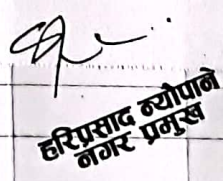 हरिप्रसाद न्यौपाने
नगर प्रमुख